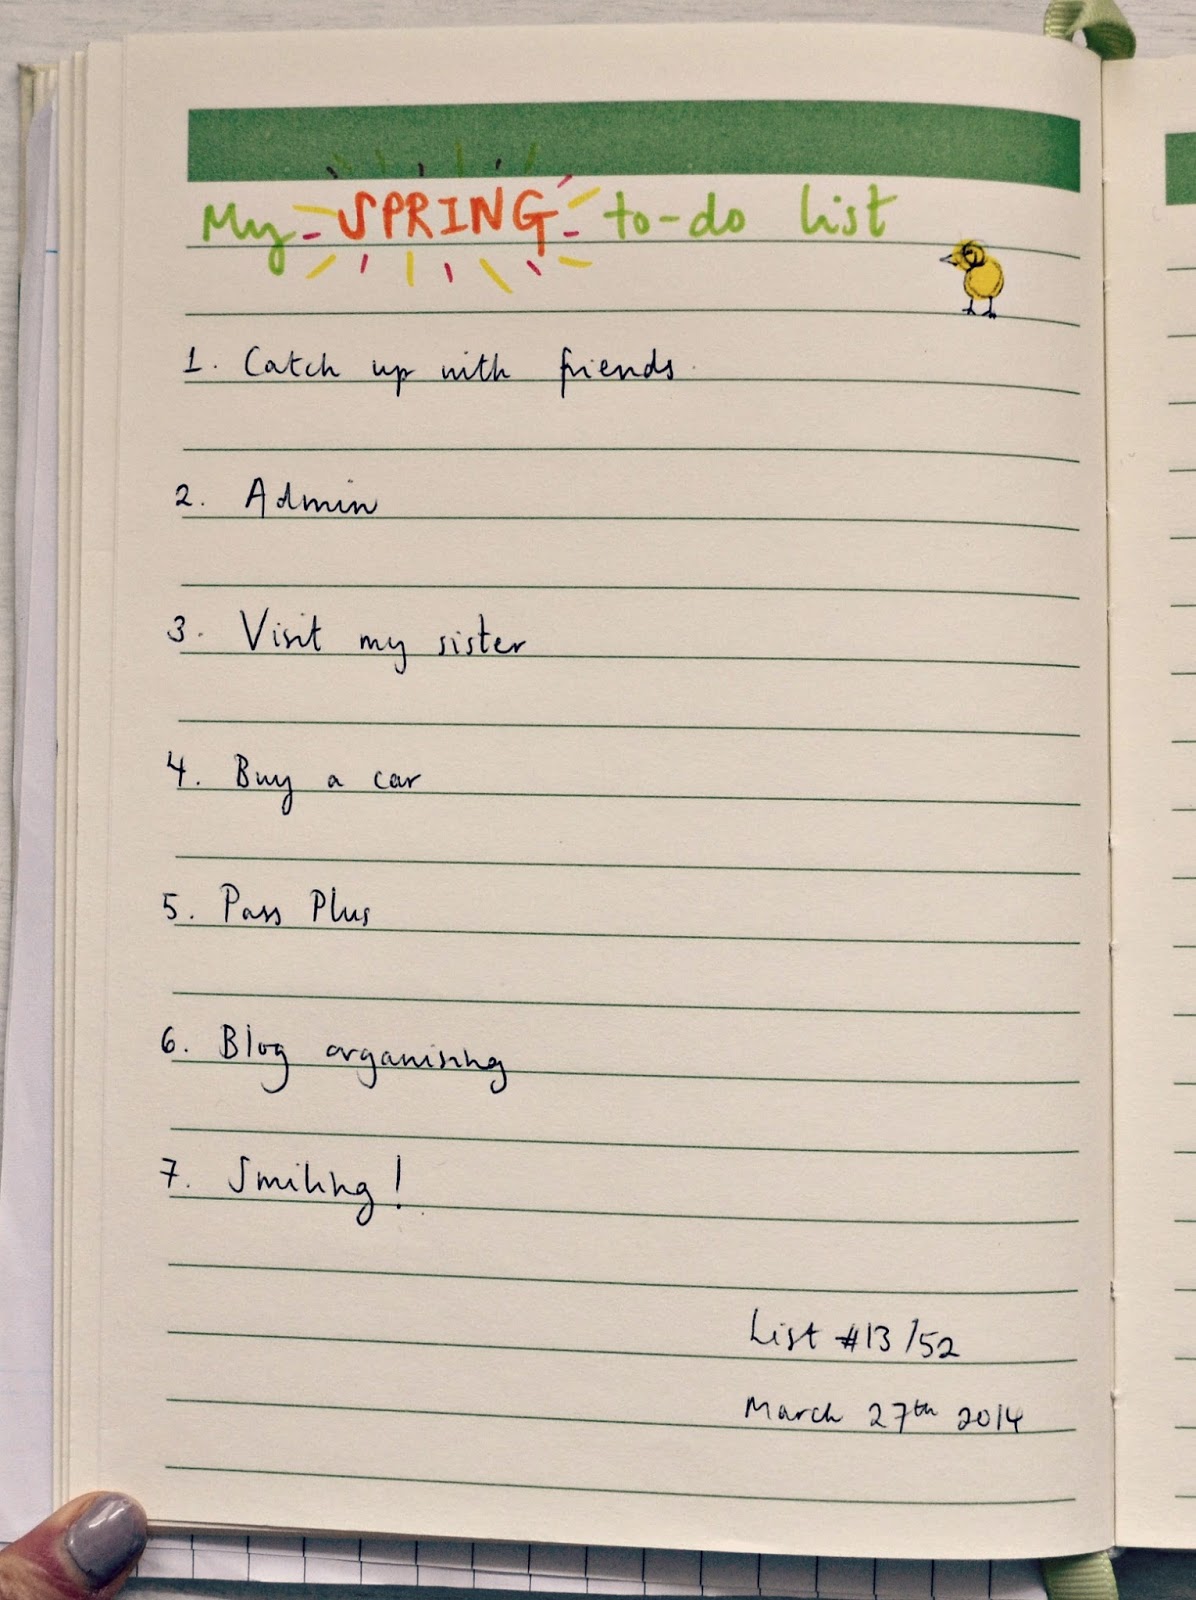 My SPRING to-do list
1. Catch up with friends.
2. Admin
3. Visit my sister
4. Buy a car
5. Pass Plus
6. Blog organising
7. Smiling!
List #13/52
March 27th 2014